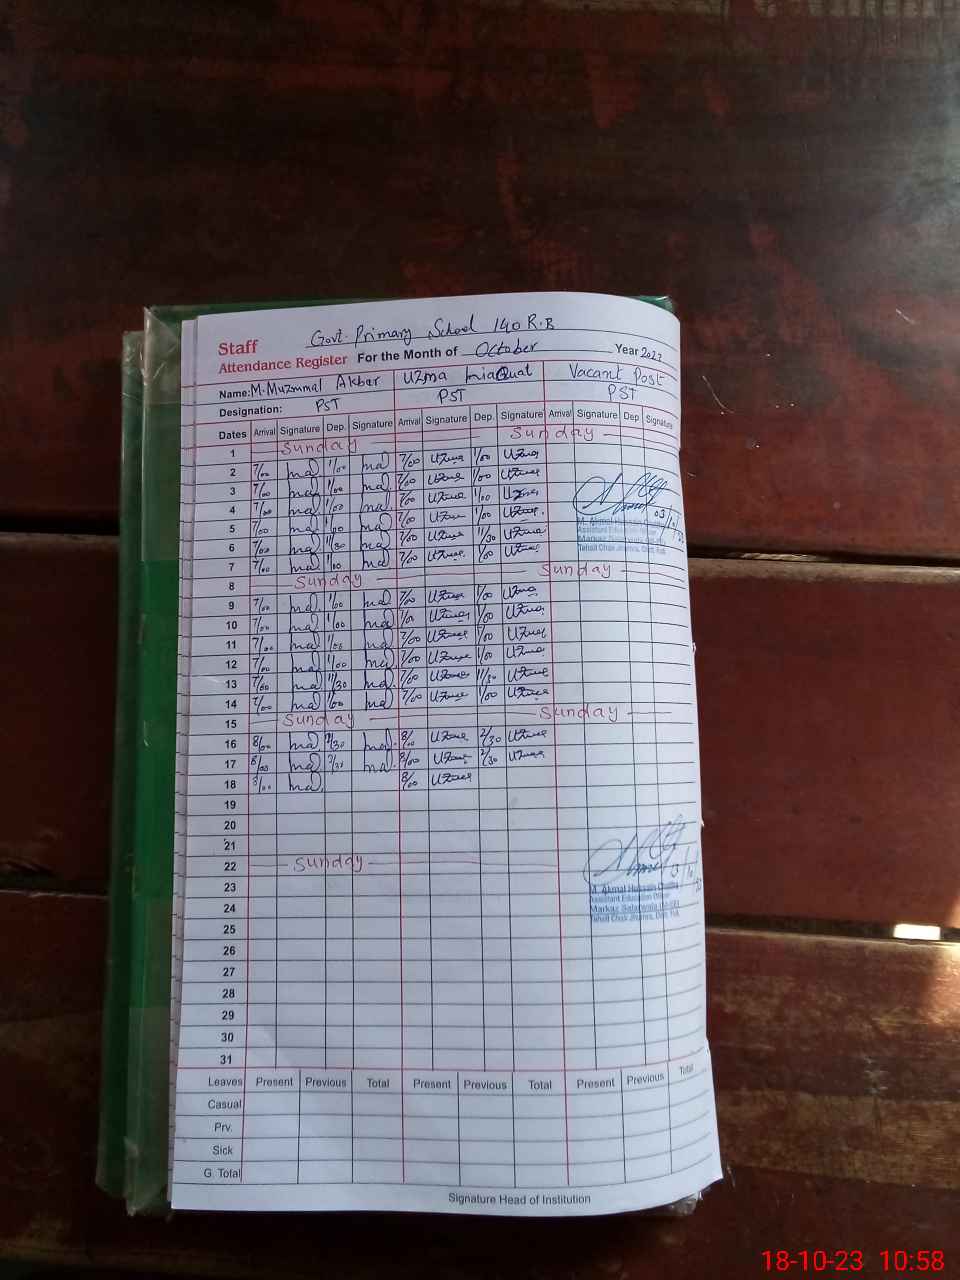 Govt. Primary School 140 R.B
Staff
Attendance Register For the Month of October Year 2023
Name: M. Muzmmal Akbar Uzma Liaquat Vacant Post
Designation: PST PST PST
Dates Arrival Signature Dep. Signature Arrival Signature Dep. Signature Arrival Signature Dep. Signature
1 Sunday Sunday
2 7/00 ma 1/00 ma 7/00 Uzma 1/00 Uzma
3 7/00 ma 1/00 ma 7/00 Uzma 1/00 Uzma
4 7/00 ma 1/00 ma 7/00 Uzma 1/00 Uzma
5 7/00 ma 1/00 ma 7/00 Uzma 1/00 Uzma
6 7/00 ma 11/30 ma 7/00 Uzma 11/30 Uzma
7 7/00 ma 1/00 ma 7/00 Uzma 1/00 Uzma
8 Sunday Sunday
9 7/00 ma 1/00 ma 7/00 Uzma 1/00 Uzma
10 7/00 ma 1/00 ma 7/00 Uzma 1/00 Uzma
11 7/00 ma 1/00 ma 7/00 Uzma 1/00 Uzma
12 7/00 ma 1/00 ma 7/00 Uzma 1/00 Uzma
13 7/00 ma 11/30 ma 7/00 Uzma 11/30 Uzma
14 7/00 ma 1/00 ma 7/00 Uzma 1/00 Uzma
15 Sunday Sunday
16 8/00 ma 2/30 ma 8/00 Uzma 2/30 Uzma
17 8/00 ma 2/30 ma 8/00 Uzma 2/30 Uzma
18 8/00 ma 8/00 Uzma
19
20
21
22 Sunday
23
M. Akmal Hussain
Assistant Education Officer
24
Markaz Salarwala
Tehsil Chak Jhumra, Distt. Fsd.
25
26
27
28
29
30
31
Leaves Present Previous Total Present Previous Total Present Previous Total
Casual
Prv.
Sick
G. Total
Signature Head of Institution
18-10-23 10:58